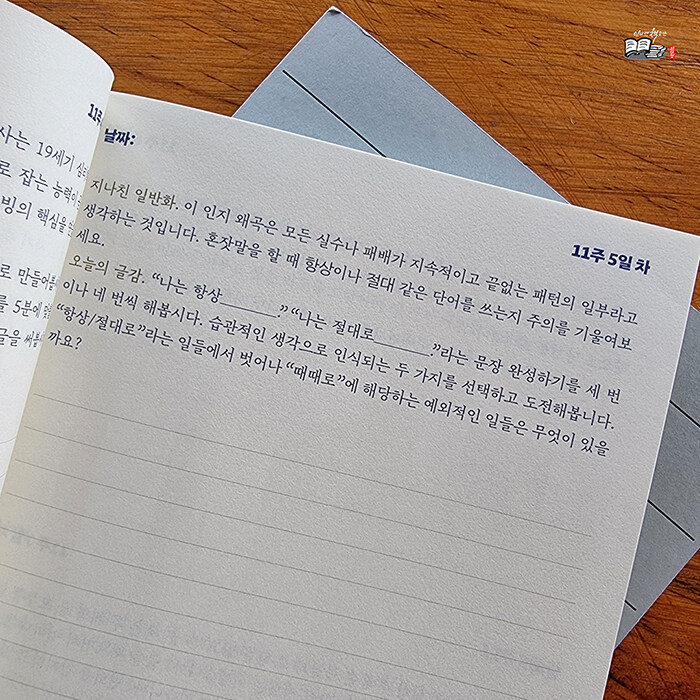 사는 19세기
로 잡는 능력이
빙의 핵심을
로 만들어
를 5분에
글을 써
날짜:
11주 5일 차
지나친 일반화. 이 인지 왜곡은 모든 실수나 패배가 지속적이고 끝없는 패턴의 일부라고
생각하는 것입니다. 혼잣말을 할 때 항상이나 절대 같은 단어를 쓰는지 주의를 기울여보
세요.
오늘의 글감. “나는 항상______.” “나는 절대로______.”라는 문장 완성하기를 세 번
이나 네 번씩 해봅시다. 습관적인 생각으로 인식되는 두 가지를 선택하고 도전해봅니다.
“항상/절대로”라는 일들에서 벗어나 “때때로”에 해당하는 예외적인 일들은 무엇이 있을
까요?